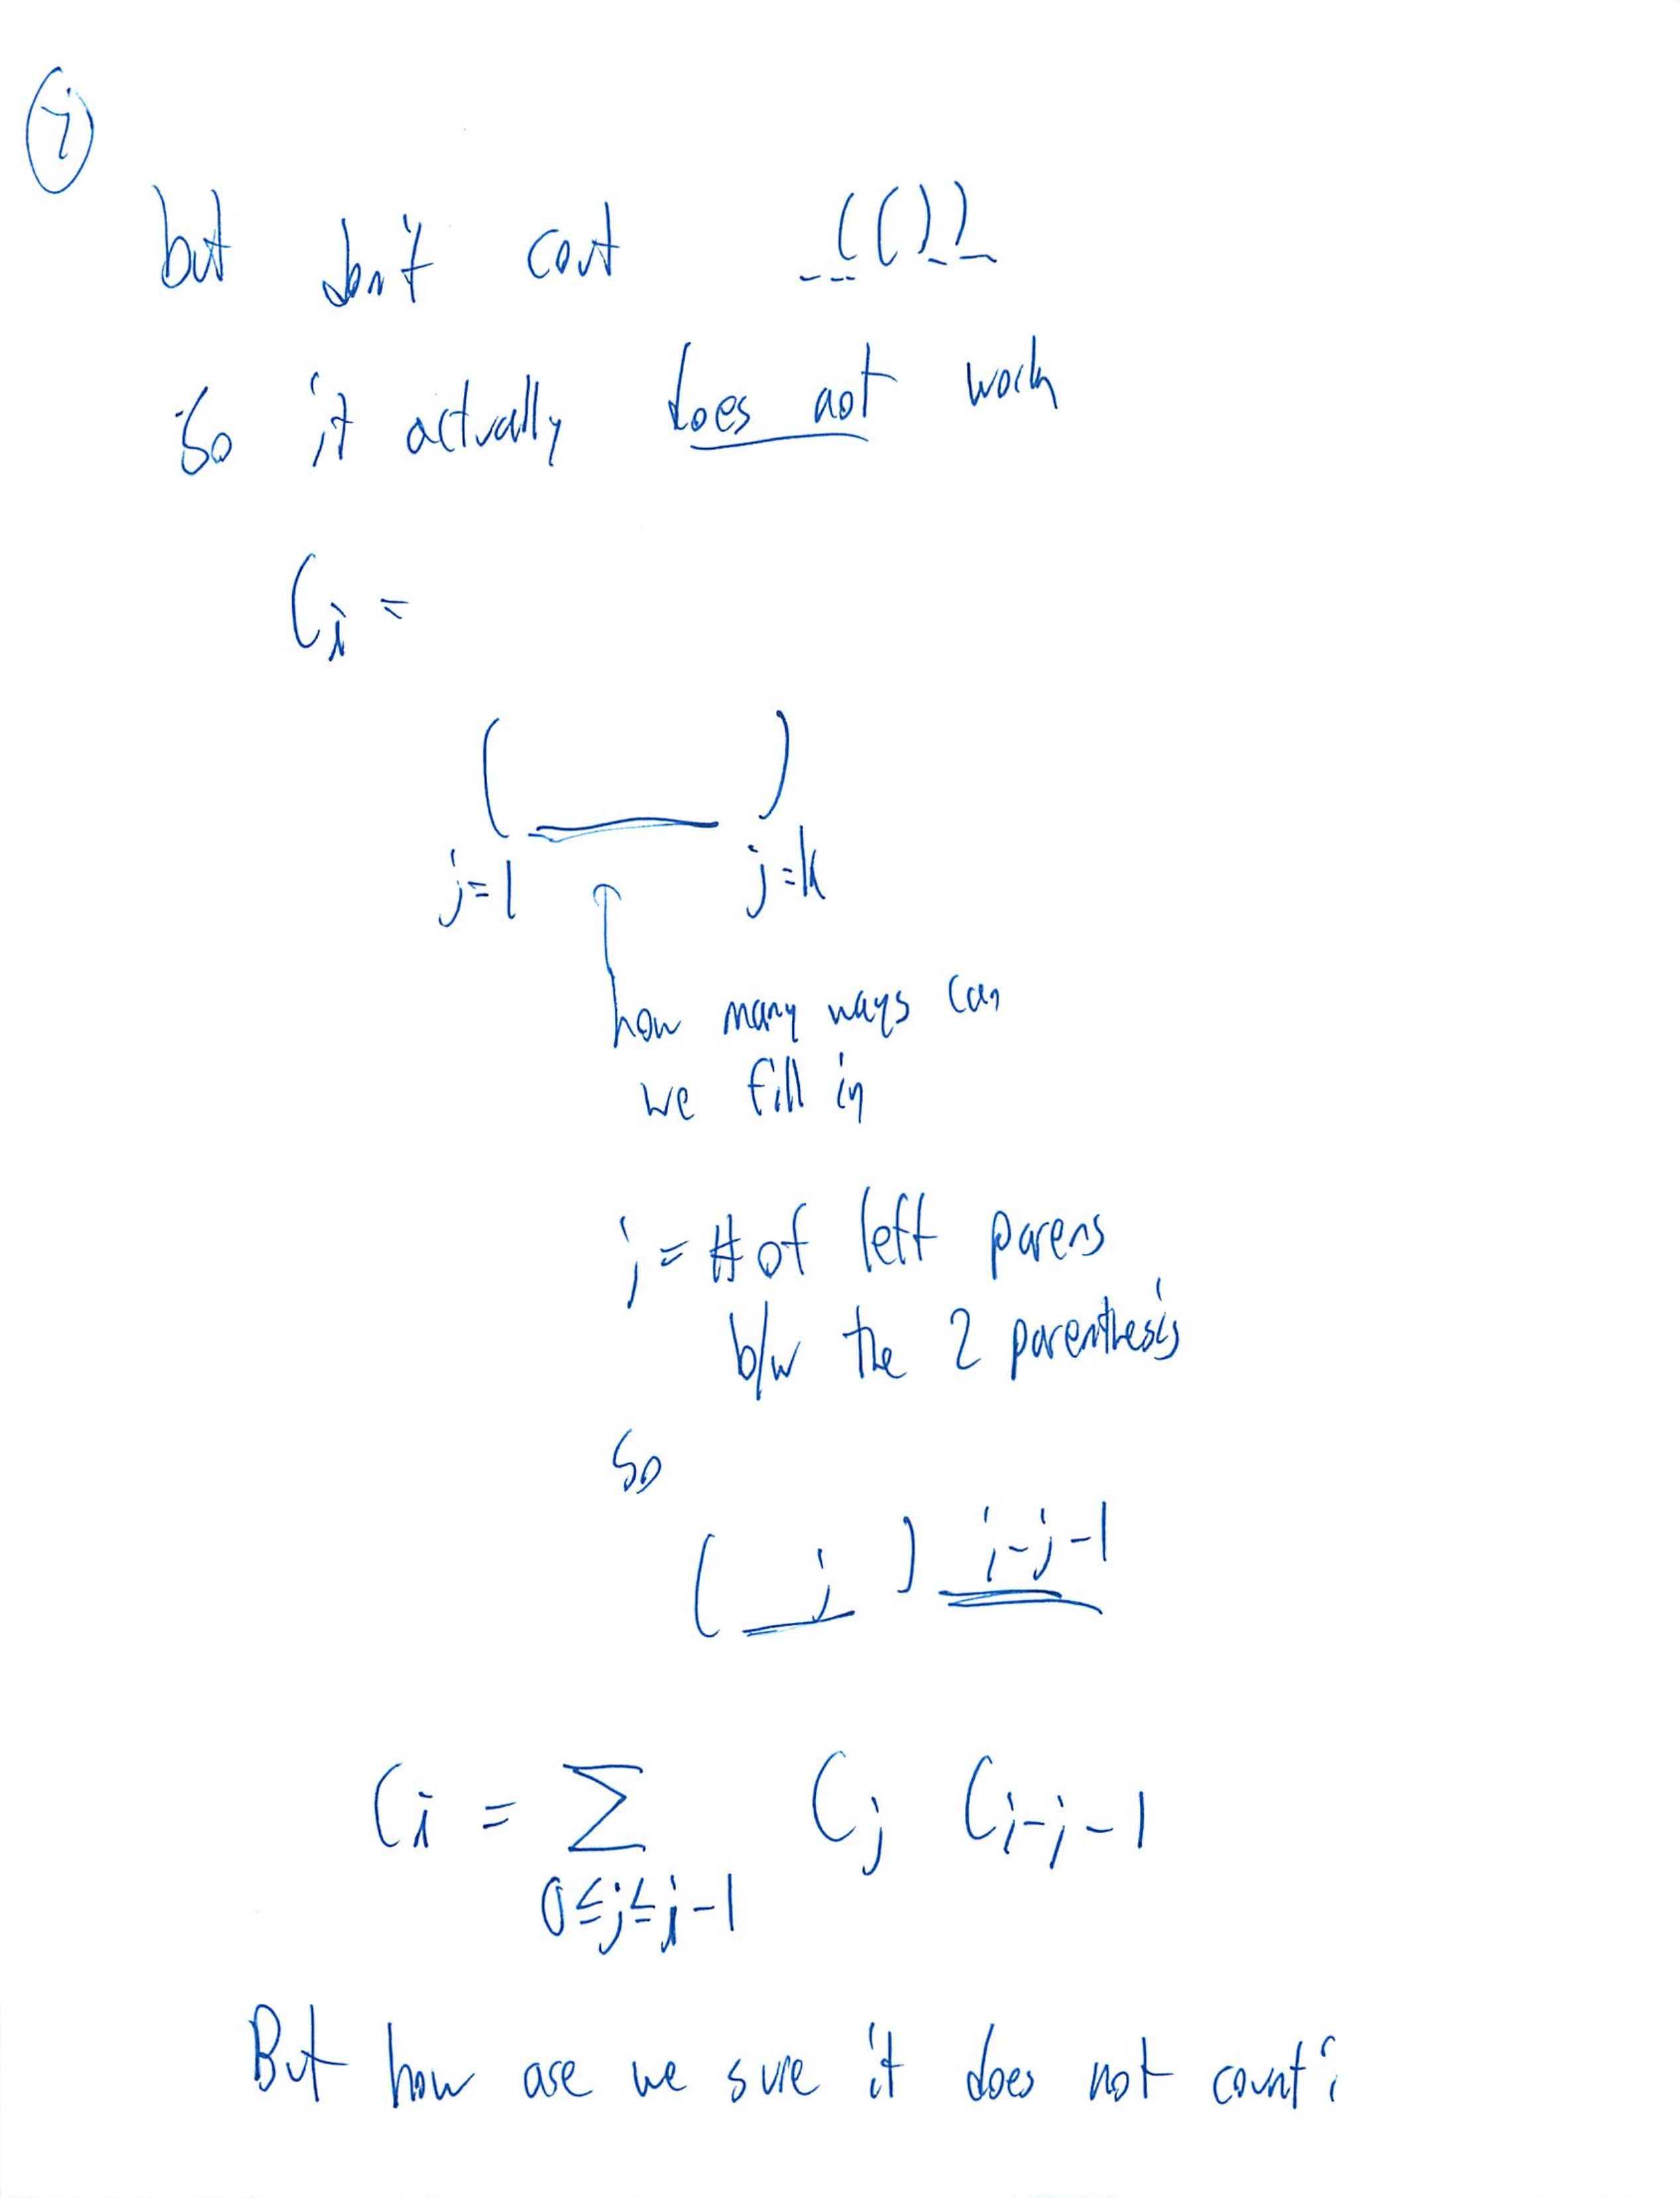 7
but don't cout _ _(()) _
So it actually does not work
Ci =
( ___ )
j=1 j=k
how many ways can
we fill in
j = # of left parens
b/w the 2 parenthesis
So
( j ) i-j-1
Ci = Σ Cj Ci-j-1
0≤j≤i-1
But how are we sure it does not count: